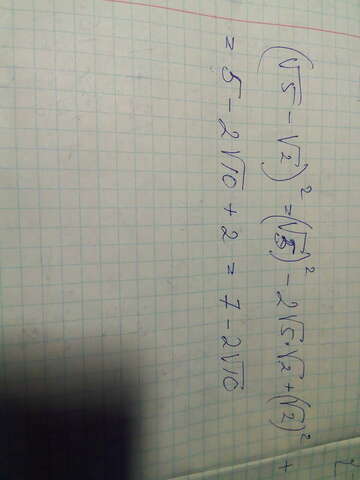 (√5 - √2)² = (√5)² - 2√5·√2 + (√2)² +
= 5 - 2√10 + 2 = 7 - 2√10